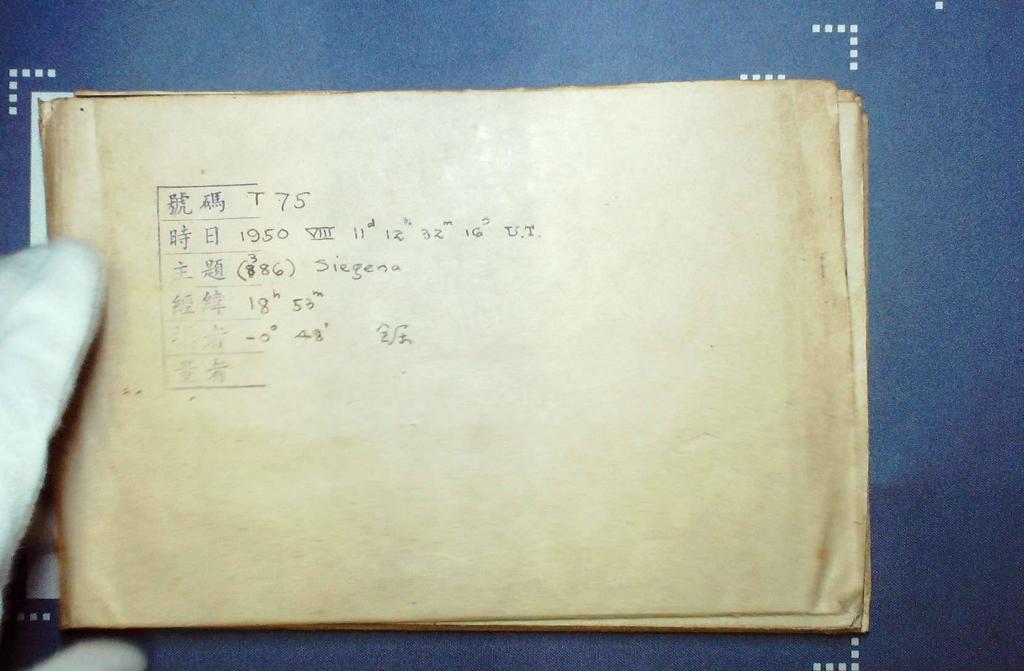 號碼 T 75
時日 1950 VIII 11ᵈ 12ʰ 32ᵐ 16ˢ U.T.
主題 (386) Siegena
經緯 18ʰ 53ᵐ
者 -0° 48'
量者